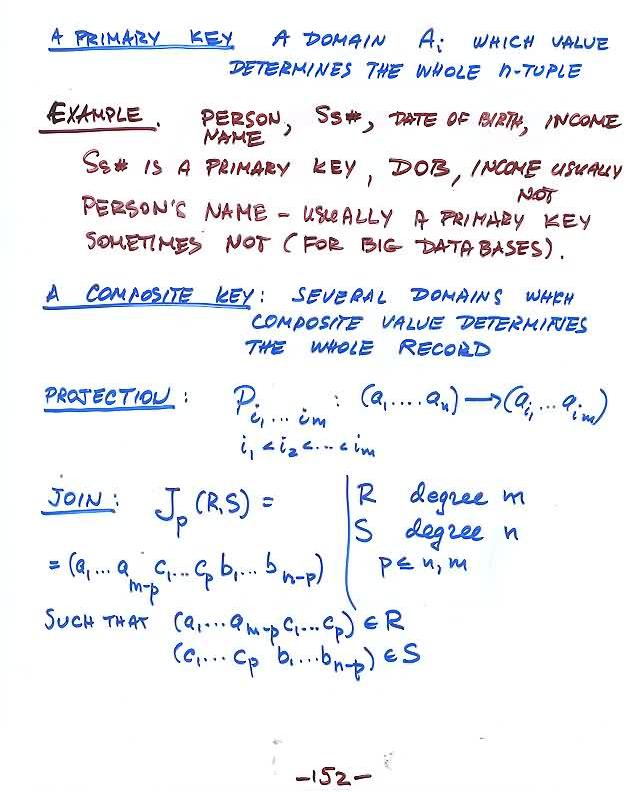 A PRIMARY KEY A DOMAIN Ai WHICH VALUE
DETERMINES THE WHOLE n-TUPLE
EXAMPLE. PERSON NAME, SS#, DATE OF BIRTH, INCOME
SS# IS A PRIMARY KEY, DOB, INCOME USUALLY NOT
PERSON'S NAME – USUALLY A PRIMARY KEY
SOMETIMES NOT (FOR BIG DATABASES).
A COMPOSITE KEY: SEVERAL DOMAINS WHCH
COMPOSITE VALUE DETERMINES
THE WHOLE RECORD
PROJECTION: P_{i_1 ... i_m} : (a_1 .... a_n) → (a_{i_1} ... a_{i_m})
i_1 < i_2 < ... < i_m
JOIN: J_p (R,S) = | R degree m
S degree n
= (a_1 ... a_{m-p} c_1 ... c_p b_1 ... b_{n-p}) | p ≤ n, m
SUCH THAT (a_1 ... a_{m-p} c_1 ... c_p) ∈ R
(c_1 ... c_p b_1 ... b_{n-p}) ∈ S
-152-